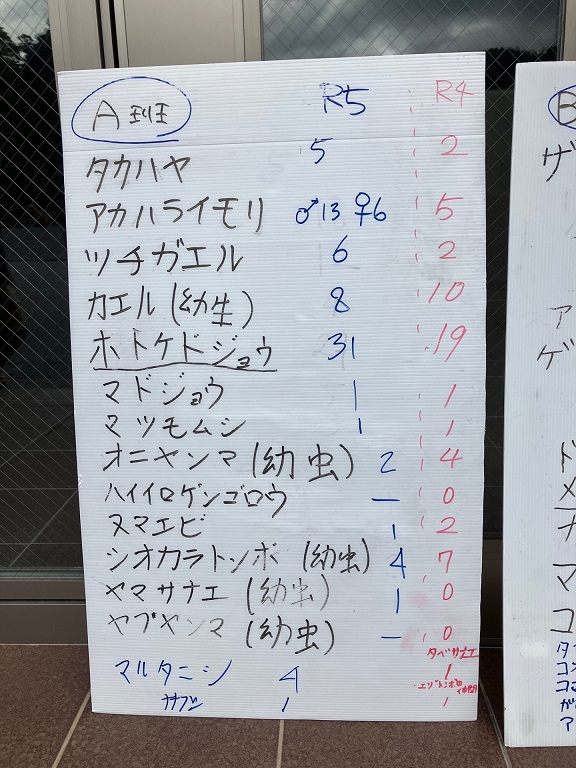 A班 R5 R4
タカハヤ 5 2
アカハライモリ ♂13 ♀6 5
ツチガエル 6 2
カエル(幼生) 8 10
ホトケドジョウ 31 19
マドジョウ 1 1
マツモムシ 1 1
オニヤンマ(幼虫) 2 4
ハイイロゲンゴロウ ー 0
ヌマエビ 1 2
シオカラトンボ(幼虫) 4 7
ヤマサナエ(幼虫) 1 0
ヤブヤンマ(幼虫) ー 0
タベサナエ
マルタニシ 4 1
エゾトンボの仲間
1 1
B
ザ
ア
ゲ
ド
メ
ナ
マ
コ
タ
コ
コ
が
ア